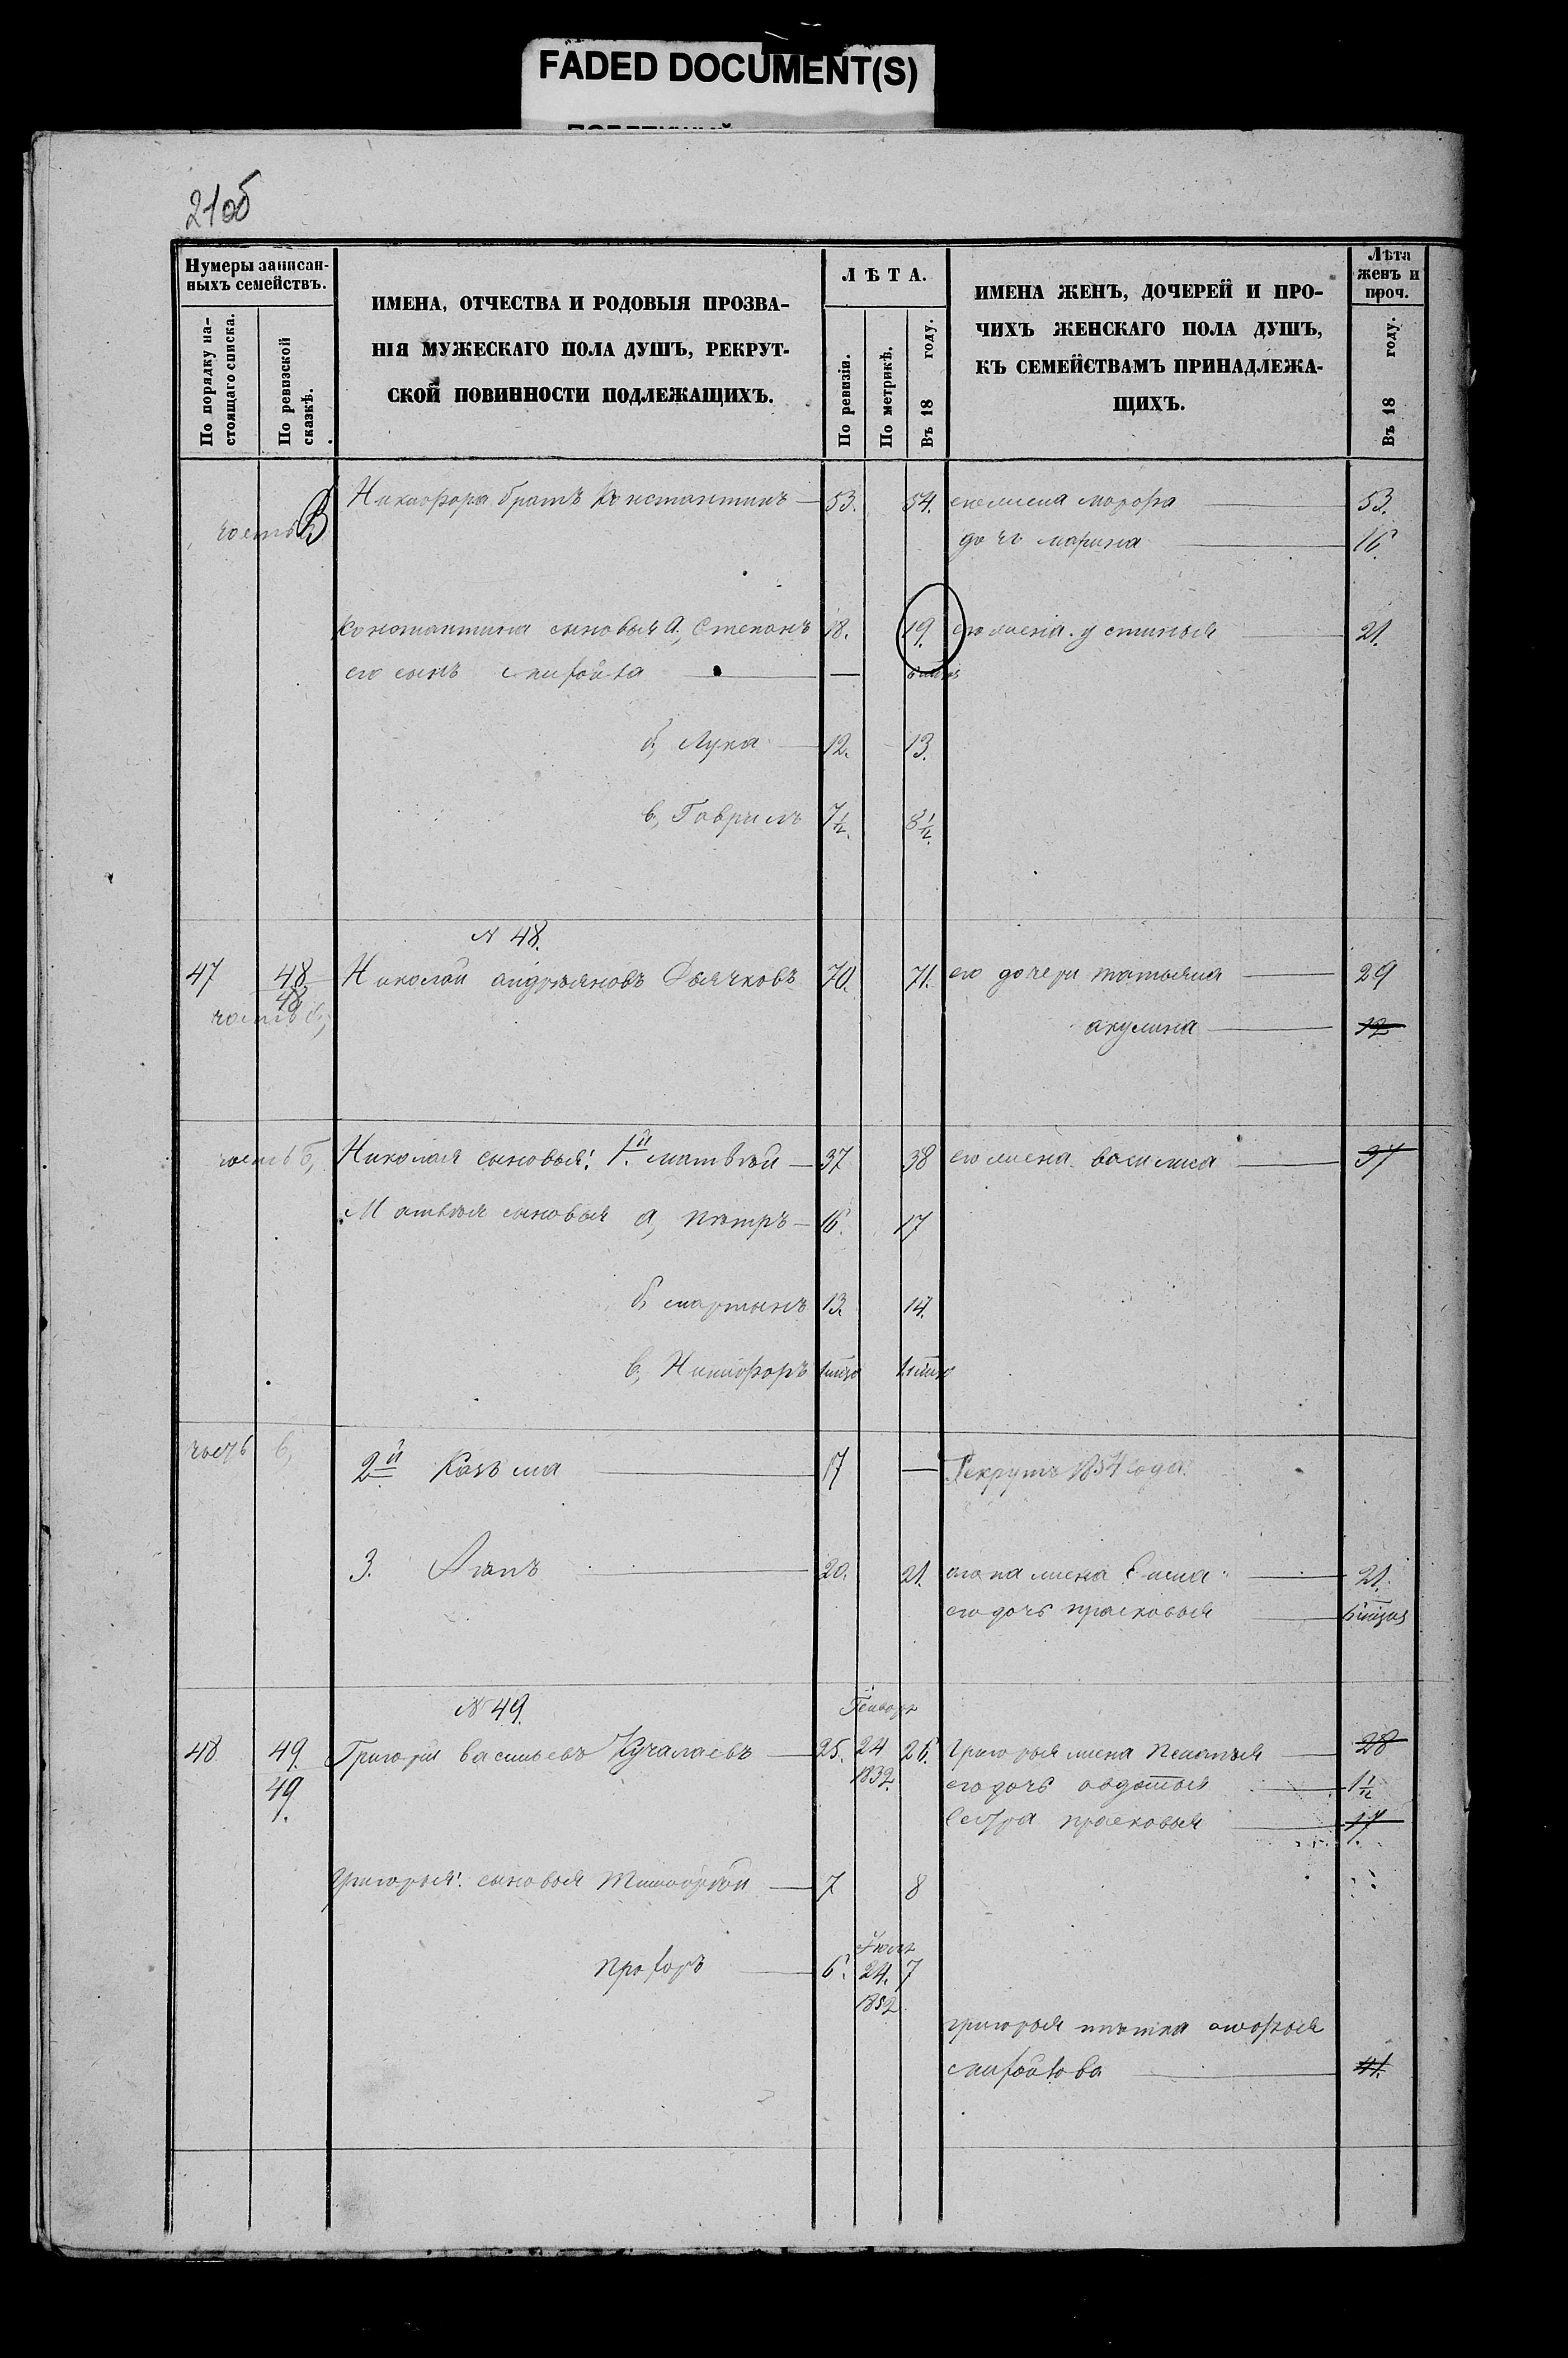 FADED DOCUMENT(S)
21об
Нумеры записан-
ныхъ семействъ.
По порядку на-
стоящаго списка.
По ревизской
сказкѣ.
ИМЕНА, ОТЧЕСТВА И РОДОВЫЯ ПРОЗВА-
НІЯ МУЖЕСКАГО ПОЛА ДУШЪ, РЕКРУТ-
СКОЙ ПОВИННОСТИ ПОДЛЕЖАЩИХЪ.
ЛѢТА.
По ревизіи.
По метрикѣ.
Въ 18 году.
ИМЕНА ЖЕНЪ, ДОЧЕРЕЙ И ПРО-
ЧИХЪ ЖЕНСКАГО ПОЛА ДУШЪ,
КЪ СЕМЕЙСТВАМЪ ПРИНАДЛЕЖА-
ЩИХЪ.
Лѣта
женъ и
проч.
Въ 18 году.
Никифора братъ Константинъ 53. 54. его жена 53.
часть В дочь марина 16.
Константина сыновья а, Степанъ 18. 19. его жена устинья 21.
его сынъ —
б, Лука 12. 13.
в, Гаврилъ 7½. 8½.
N 48.
47 48 Николай андреяновъ Дьячковъ 70. 71. его дочери татьяна 29
48 часть а, акулина 12
часть б, Николая сыновья: 1й матвей 37 38 его жена василиса 37
Матвея сыновья а, петръ 16. 17
б, мартынъ 13. 14.
в, Никифоръ
часть в, 2й Козьма 17 — Рекрутъ 1854 года.
3. 20. 21. жена 21.
его дочь прасковья
N 49.
Генворя
48 49. Григорій васильевъ Кучалаевъ 25. 24 26. Григорья жена пелагея 28
49. 1832. его дочь авдотья 1½
Сестра прасковья 17
Григорья: сыновья Тимофей 7 8
Іюля
прохоръ 6. 24. 7
1852
григорья тетка
41.